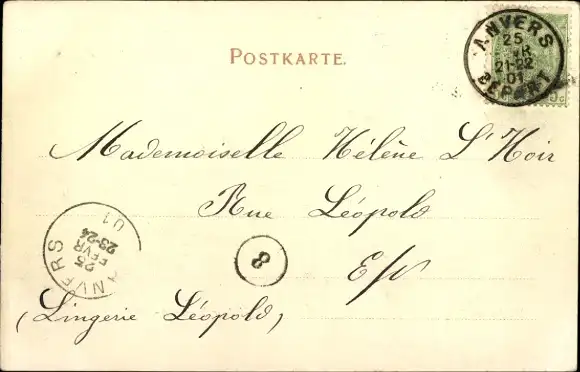 POSTKARTE.
ANVERS
25
VR
21-22
01
DEPART
5c
Mademoiselle Hélène L'Hoir
Rue Léopold
E/V
(Lingerie Léopold)
ANVERS
25
FEVR
23-24
01
8